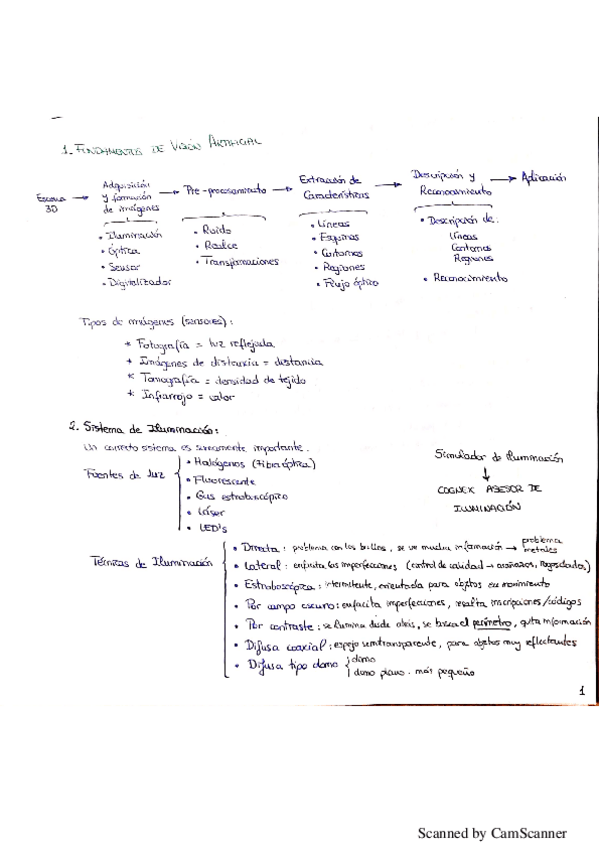 1. FUNDAMENTOS DE VISIÓN ARTIFICIAL
Escena 3D → Adquisición y formación de imágenes → Pre-procesamiento → Extracción de Características → Descripción y Reconocimiento → Aplicación
• Iluminación
• Óptica
• Sensor
• Digitalizador
• Ruido
• Realce
• Transformaciones
• Líneas
• Esquinas
• Contornos
• Regiones
• Flujo óptico
• Descripción de:
Líneas
Contornos
Regiones
• Reconocimiento
Tipos de imágenes (sensores):
* Fotografía = luz reflejada
* Imágenes de distancia = distancia
* Tomografía = densidad de tejido
* Infrarrojo = calor
2. Sistema de Iluminación:
Un correcto sistema es sumamente importante.
Fuentes de luz
• Halógenos (fibra óptica)
• Fluorescente
• Gas estroboscópico
• Láser
• LED's
Simulador de iluminación
↓
COGNEX ASESOR DE
ILUMINACIÓN
Técnicas de Iluminación
• Directa: problema con los brillos, se ve mucha información → problema metales
• Lateral: enfatiza las imperfecciones (control de calidad → arañazos, rasgados,)
• Estroboscópica: intermitente, orientada para objetos en movimiento
• Por campo oscuro: enfatiza imperfecciones, resalta inscripciones/códigos
• Por contraste: se ilumina desde atrás, se busca el perímetro, quita información
• Difusa coaxial: espejo semitransparente, para objetos muy reflectantes
• Difusa tipo domo { domo
domo plano. más pequeño
1
Scanned by CamScanner